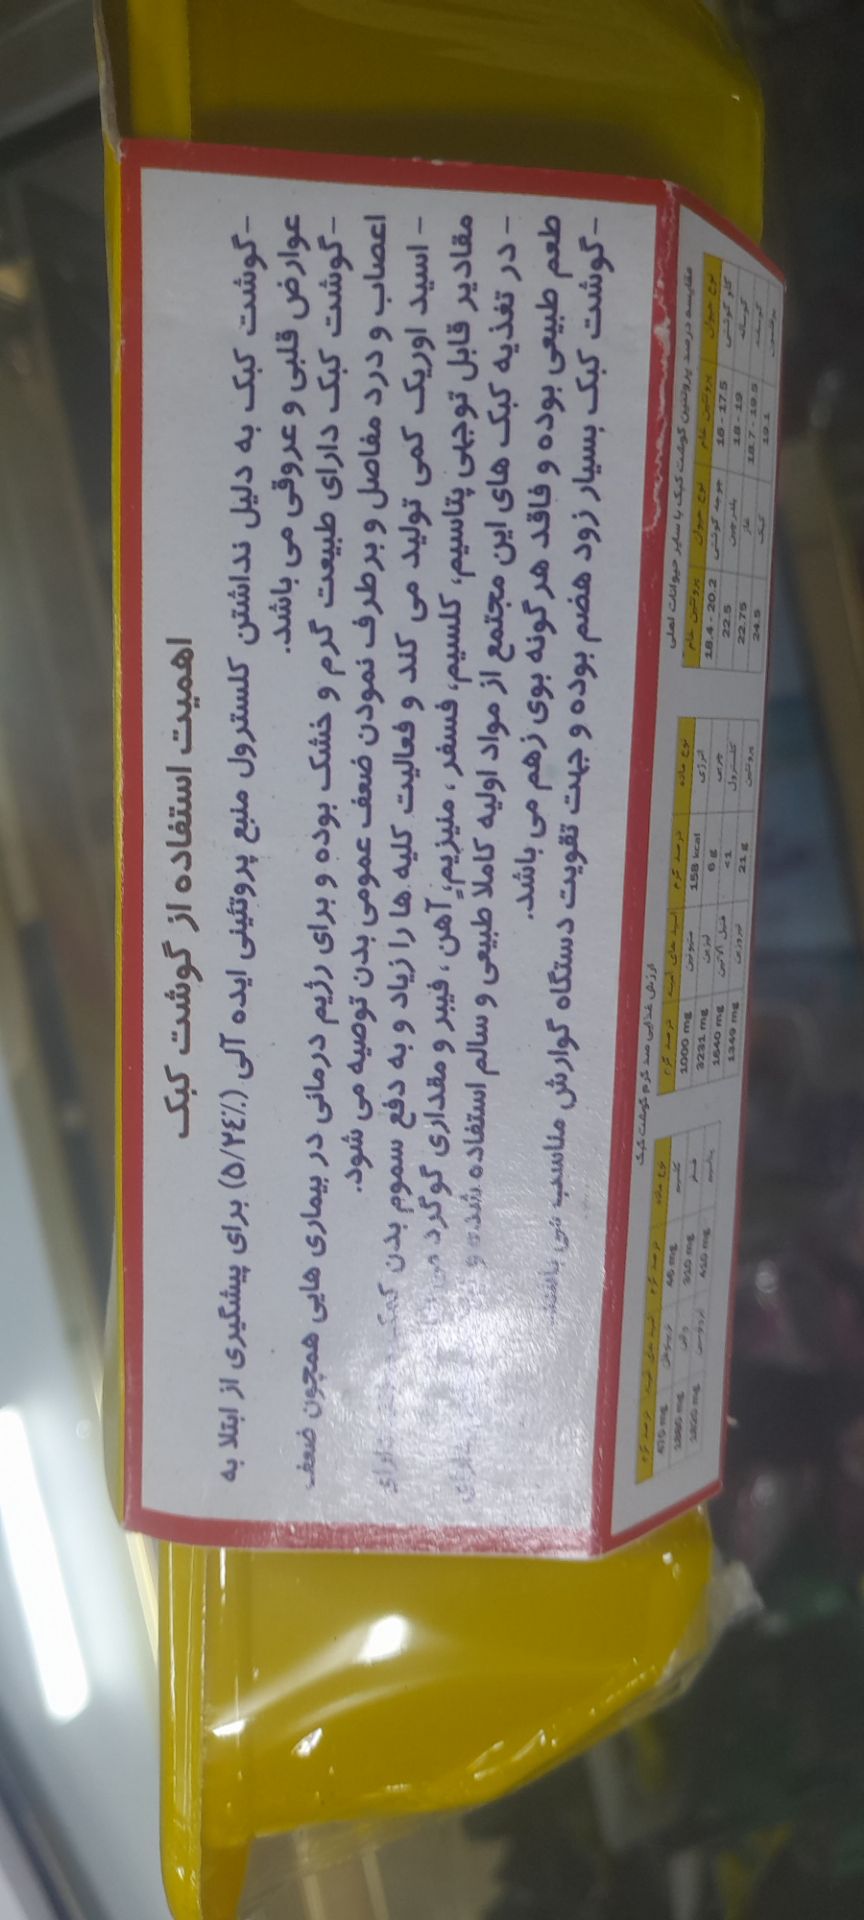 اهمیت استفاده از گوشت کبک
-گوشت کبک به دلیل نداشتن کلسترول منبع پروتئینی ایده آلی (٪۵/۲٤) برای پیشگیری از ابتلا به
عوارض قلبی و عروقی می باشد.
-گوشت کبک دارای طبیعت گرم و خشک بوده و برای رژیم درمانی در بیماری هایی همچون ضعف
اعصاب و درد مفاصل و برطرف نمودن ضعف عمومی بدن توصیه می شود.
- اسید اوریک کمی تولید می کند و فعالیت کلیه ها را زیاد و به دفع سموم بدن کمک دارای
مقادیر قابل توجهی پتاسیم، کلسیم، فسفر ، منیزیم، آهن ، فیبر و مقداری گوگرد می
- در تغذیه کبک های این مجتمع از مواد اولیه کاملا طبیعی و سالم استفاده شده و دارای
طعم طبیعی بوده و فاقد هر گونه بوی زهم می باشد.
-گوشت کبک بسیار زود هضم بوده و جهت تقویت دستگاه گوارش مناسب می باشد.
مقایسه درصد پروتئین گوشت کبک با سایر حیوانات اهلی
نوع حیوان پروتئین خام نوع حیوان پروتئین خام
گاو گوشتی 16 - 17.5 جوجه گوشتی 18.4 - 20.2
گوساله 18 - 19 بلدرچین 22.5
گوسفند 18.7 - 19.5 غاز 22.75
19.1 کبک 24.5
ارزش غذایی صد گرم گوشت کبک
نوع ماده درصد گرم اسید های آمینه درصد گرم
انرژی 158 kcal متیونین 1000 mg
چربی 6 g لیزین 3231 mg
کلسترول <1 فنیل آلانین 1640 mg
پروتئین 21 g تیروزین 1349 mg
نوع ماده درصد گرم اسید های آمینه درصد گرم
کلسیم 46 mg
فسفر 310 mg
پتاسیم 410 mg